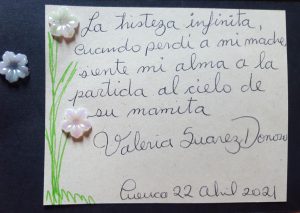 La tristeza infinita,
cuando perdí a mi madre,
siente mi alma a la
partida al cielo de
su mamita
Valeria Suarez Donoso
Cuenca 22 abril 2021